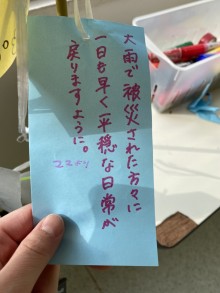 大雨で被災された方々に
一日も早く平穏な日常が
戻りますように。